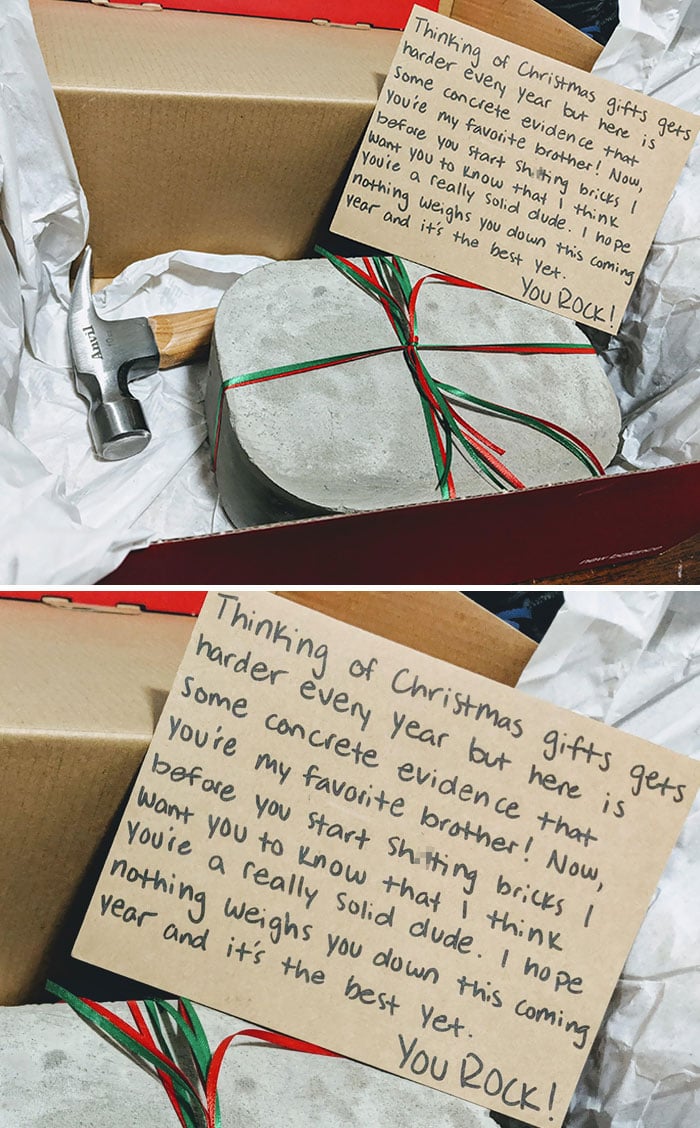 Thinking of Christmas gifts gets
harder every year but here is
some concrete evidence that
you're my favorite brother! Now,
before you start sh tting bricks I
want you to know that I think
you're a really solid dude. I hope
nothing weighs you down this coming
year and it's the best yet.
YOU ROCK!
Anvil
new balance
Thinking of Christmas gifts gets
harder every year but here is
some concrete evidence that
you're my favorite brother! Now,
before you start sh tting bricks I
want you to know that I think
you're a really solid dude. I hope
nothing weighs you down this coming
year and it's the best yet.
YOU ROCK!